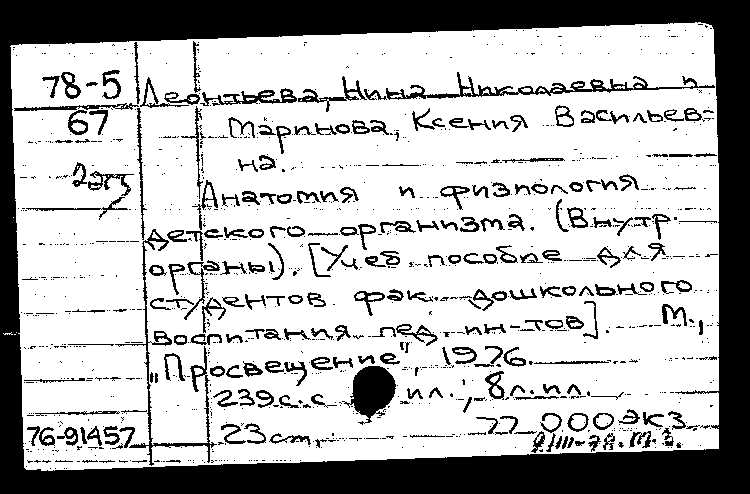 78-5 Леонтьева, Нина Николаевна и
67 Маринова, Ксения Васильев-
на.
2 экз
Анатомия и физиология
детского организма. (Внутр.
органы). [Учеб. пособие для
студентов фак. дошкольного
воспитания пед. ин-тов]. М.,
"Просвещение", 1976.
239 с. с ил.; 8 л. ил.
76-91457 23 см. 77 000 экз.